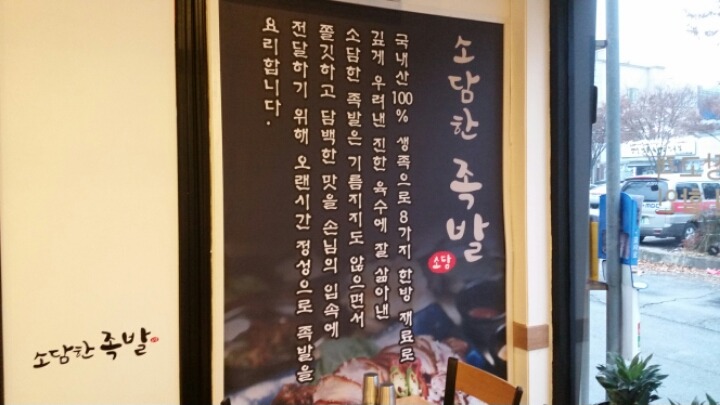 소담한 족발
소담
국내산 100% 생족으로 8가지 한방 재료로
깊게 우려낸 진한 육수에 잘 삶아낸
소담한 족발은 기름지지도 않으면서
쫄깃하고 담백한 맛을 손님의 입속에
전달하기 위해 오랜시간 정성으로 족발을
요리합니다.
소담한 족발